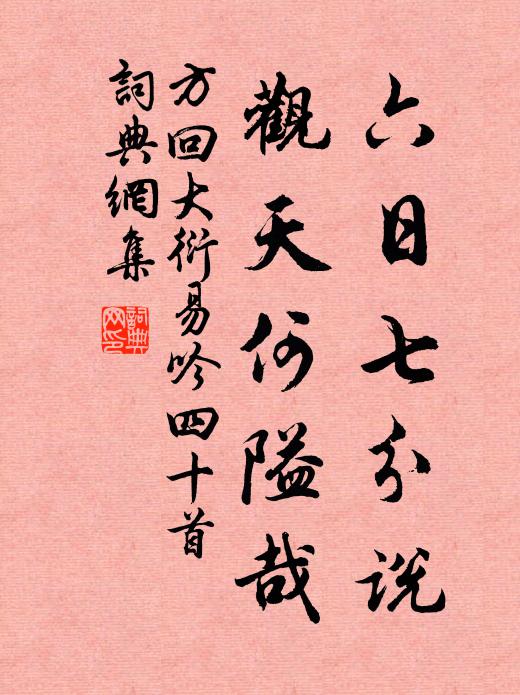 六日七分說
觀天何隘哉
方回大衍易吟四十首
詞典網集
詞典网印